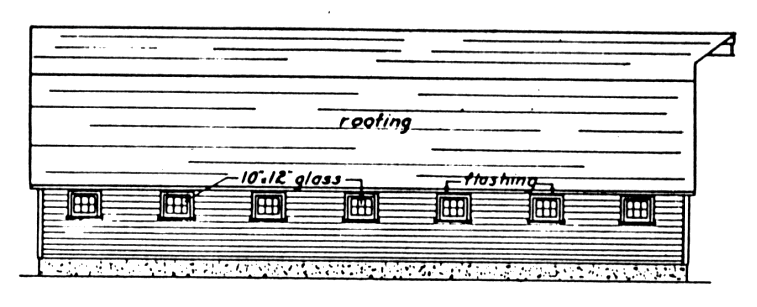 roofing
10"x12" glass
flashing